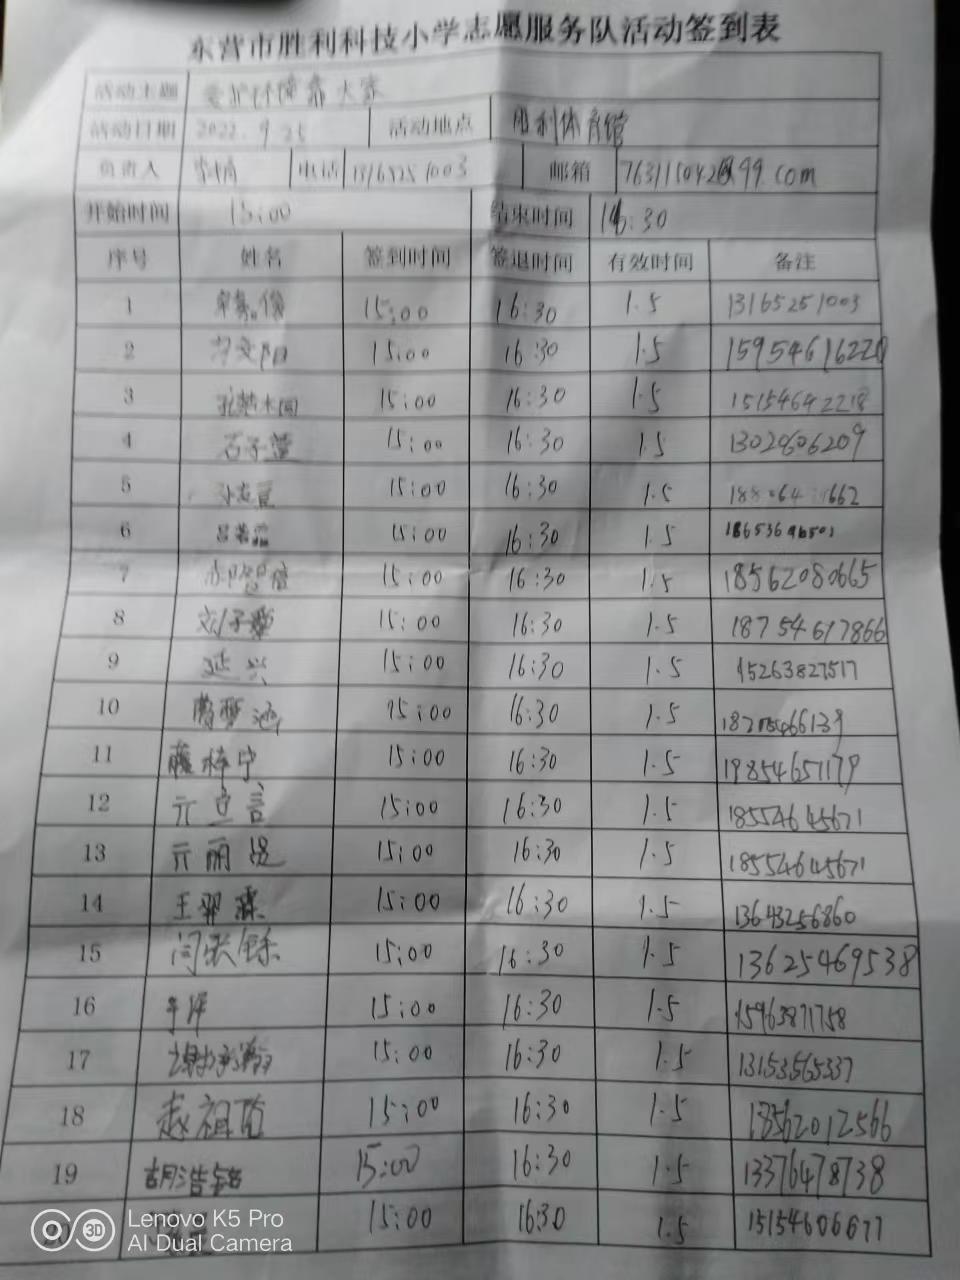 东营市胜利科技小学志愿服务队活动签到表
活动主题 爱护环境靠大家
活动日期 2022.9.25 活动地点 胜利体育馆
负责人 电话 13165251003 邮箱
开始时间 15:00 结束时间 16:30
序号 姓名 签到时间 签退时间 有效时间 备注
1 15:00 16:30 1.5 13165251003
2 15:00 16:30 1.5 15954616220
3 15:00 16:30 1.5 15154642218
4 石子萱 15:00 16:30 1.5 1302606209
5 15:00 16:30 1.5
6 15:00 16:30 1.5
7 15:00 16:30 1.5 18562080665
8 15:00 16:30 1.5 18754617866
9 延兴 15:00 16:30 1.5 15263827517
10 15:00 16:30 1.5
11 15:00 16:30 1.5 19854651179
12 亓立言 15:00 16:30 1.5 18554645671
13 亓丽 15:00 16:30 1.5 18554645671
14 王翠霖 15:00 16:30 1.5 13643256860
15 15:00 16:30 1.5 13625469538
16 15:00 16:30 1.5 15963871758
17 15:00 16:30 1.5 13153565337
18 15:00 16:30 1.5 18562012566
19 胡浩铭 15:00 16:30 1.5 13376478738
15:00 16:30 1.5 15154606677
Lenovo K5 Pro
AI Dual Camera